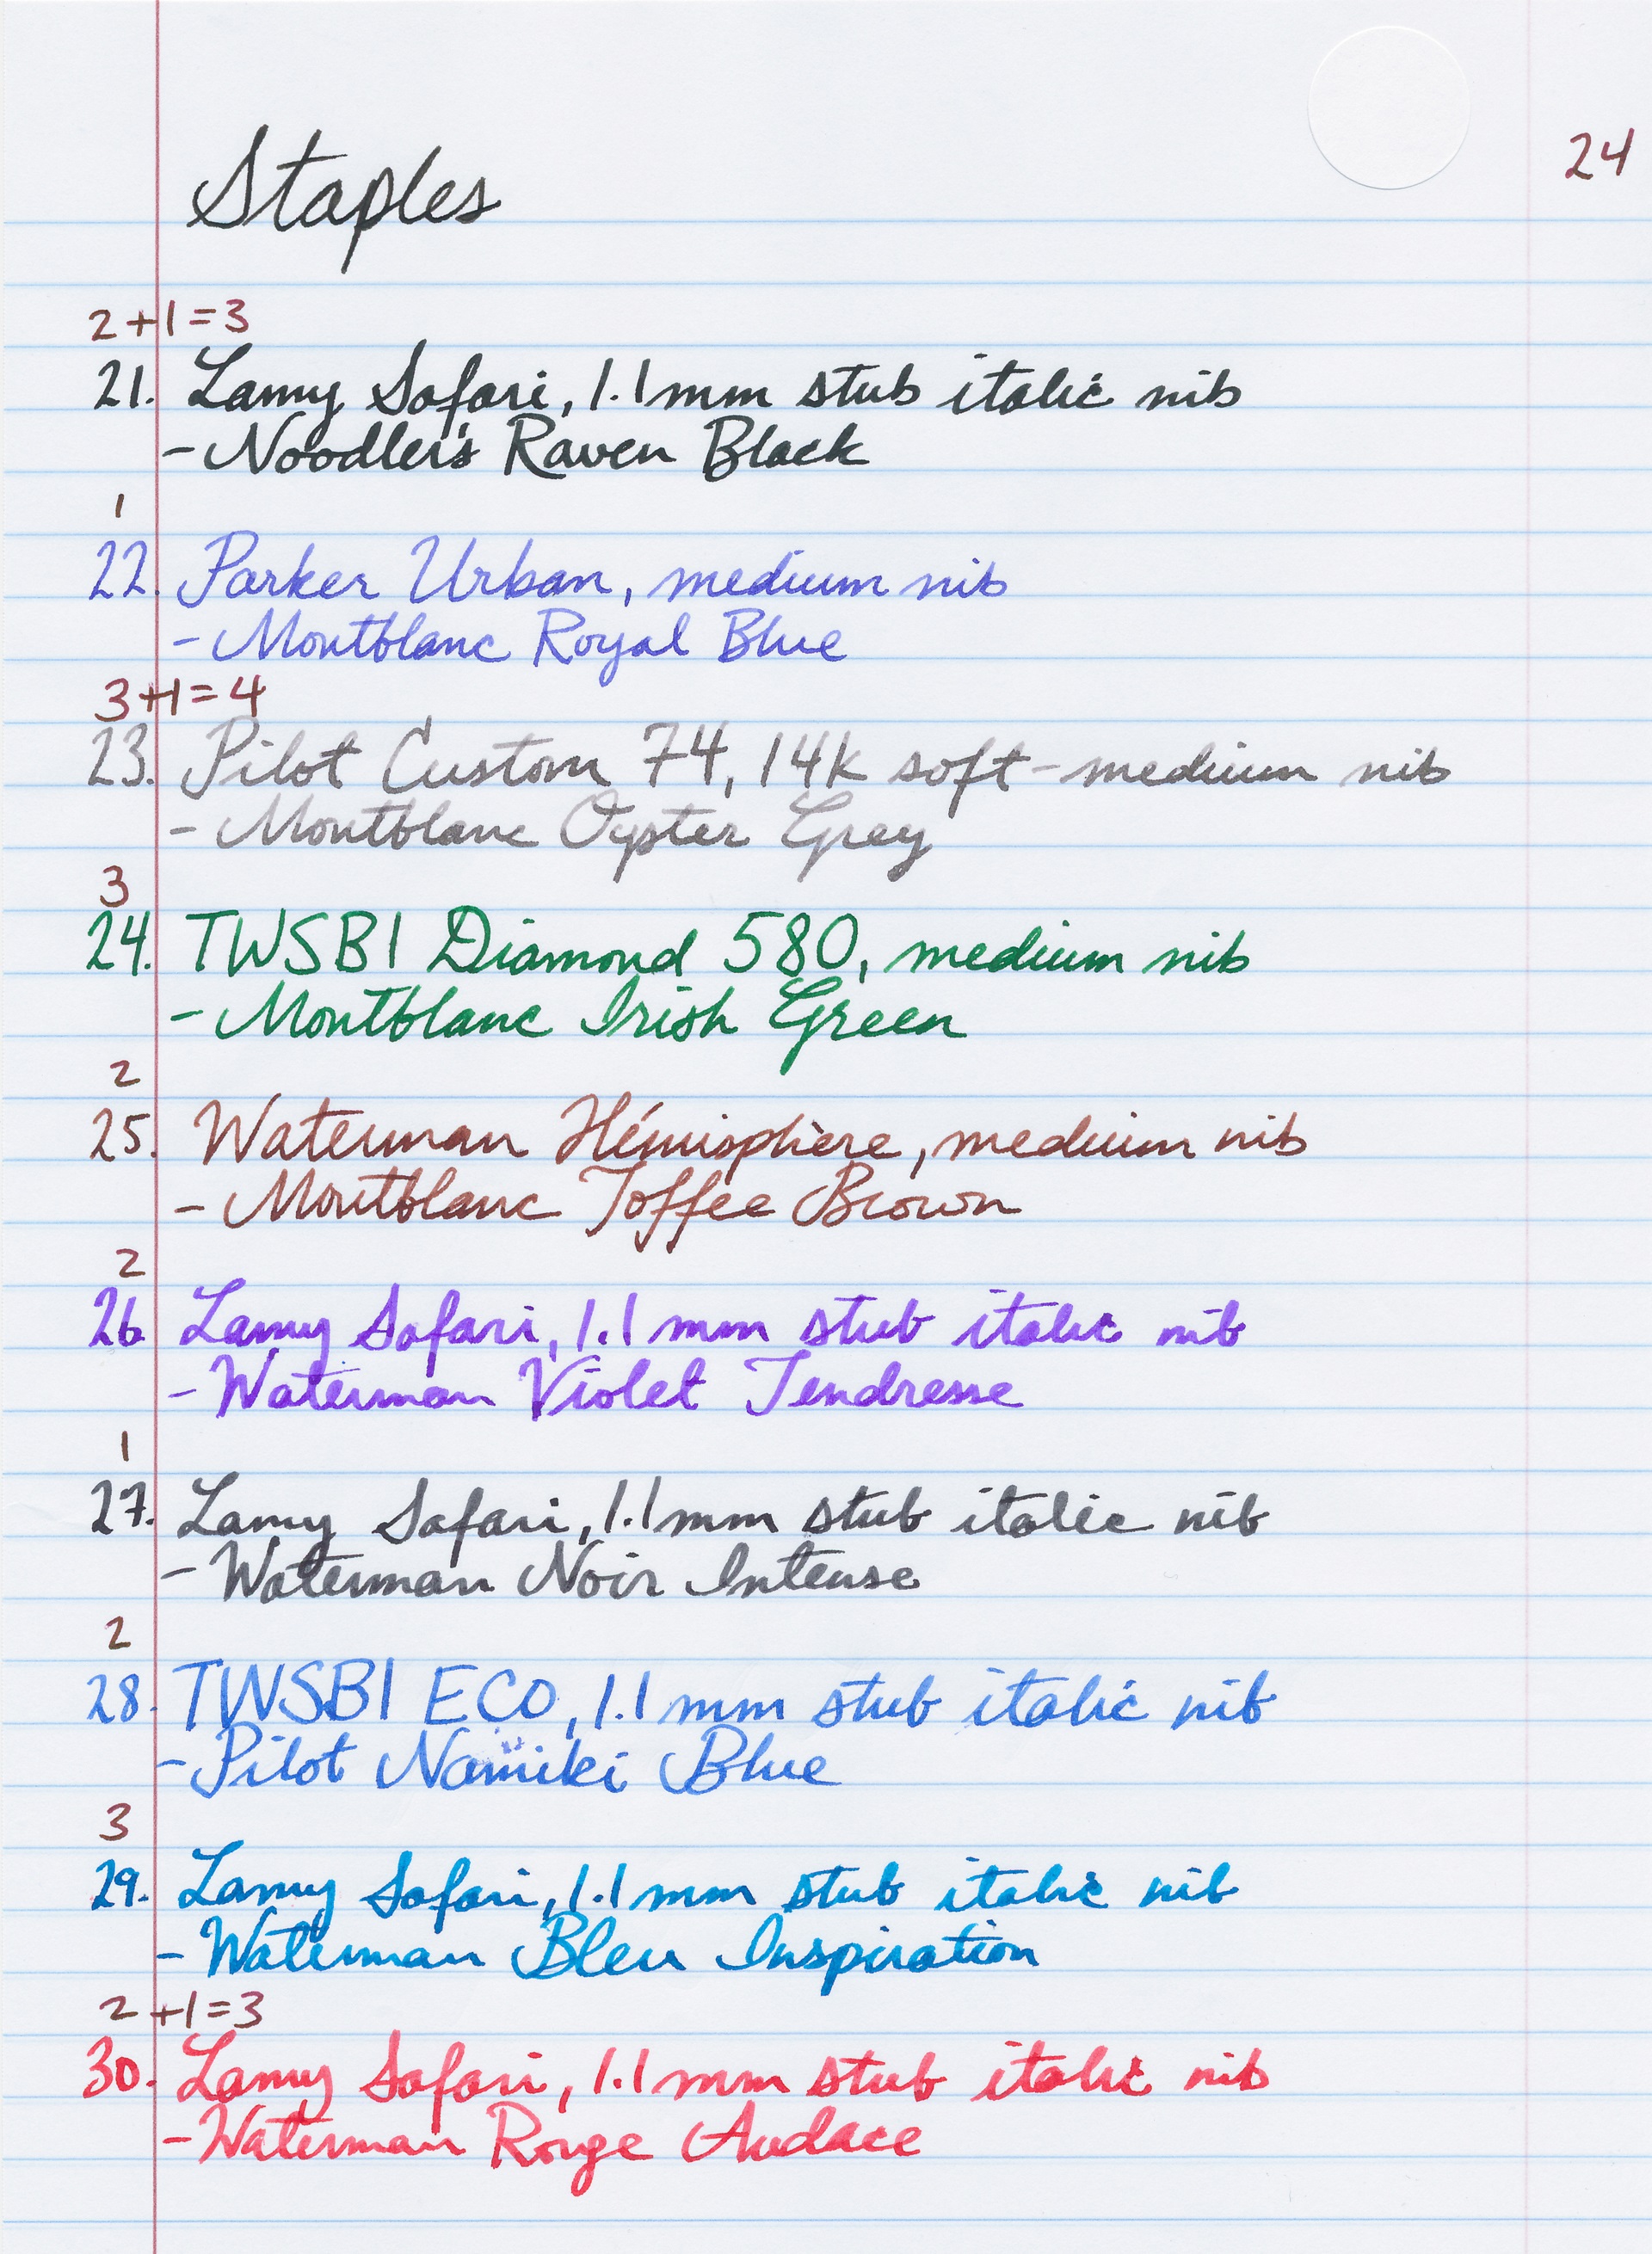 24
Staples
2+1=3
21. Lamy Safari, 1.1mm stub italic nib
- Noodler's Raven Black
1
22. Parker Urban, medium nib
- Montblanc Royal Blue
3+1=4
23. Pilot Custom 74, 14k soft-medium nib
- Montblanc Oyster Grey
3
24. TWSBI Diamond 580, medium nib
- Montblanc Irish Green
2
25. Waterman Hémisphère, medium nib
- Montblanc Toffee Brown
2
26. Lamy Safari, 1.1mm stub italic nib
- Waterman Violet Tendresse
1
27. Lamy Safari, 1.1mm stub italic nib
- Waterman Noir Intense
2
28. TWSBI ECO, 1.1mm stub italic nib
- Pilot Namiki Blue
3
29. Lamy Safari, 1.1mm stub italic nib
- Waterman Bleu Inspiration
2+1=3
30. Lamy Safari, 1.1mm stub italic nib
- Waterman Rouge Audace